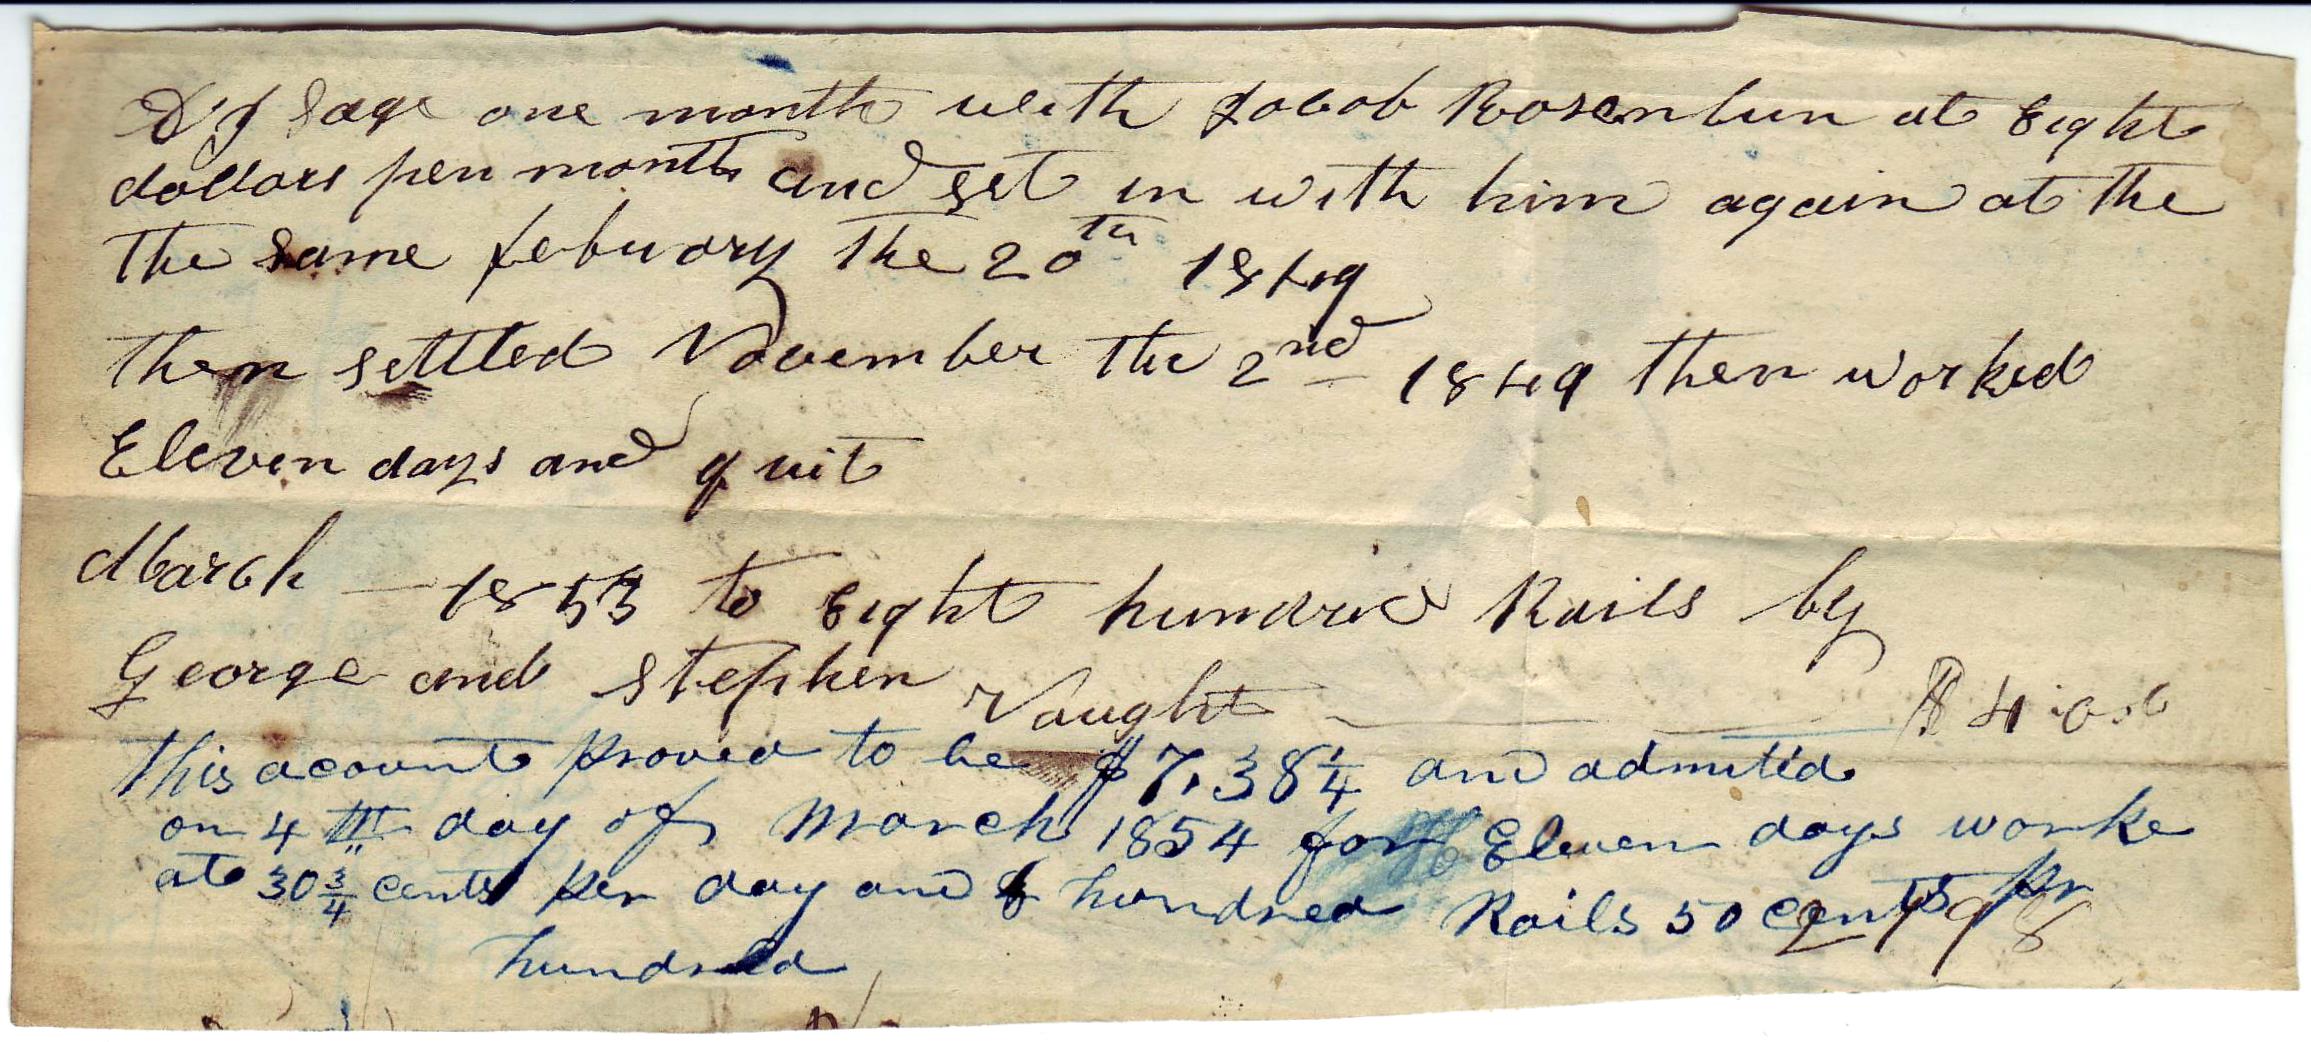 D J Sage one month with Jacob Rosenbun at Eight
dollars per month and set in with him again at the
the same febuary the 20th 1849
then settled November the 2nd 1849 then worked
Eleven days and quit
March — 1853 to Eight hundred Rails by
George and Stephen Vaught — $ 4.00
this acount proved to be $7,38 1/4 and admitted
on 4th day of March 1854 for Eleven days worke
at 30 3/4 cents per day and 8 hundred Rails 50 cents pr
hundred